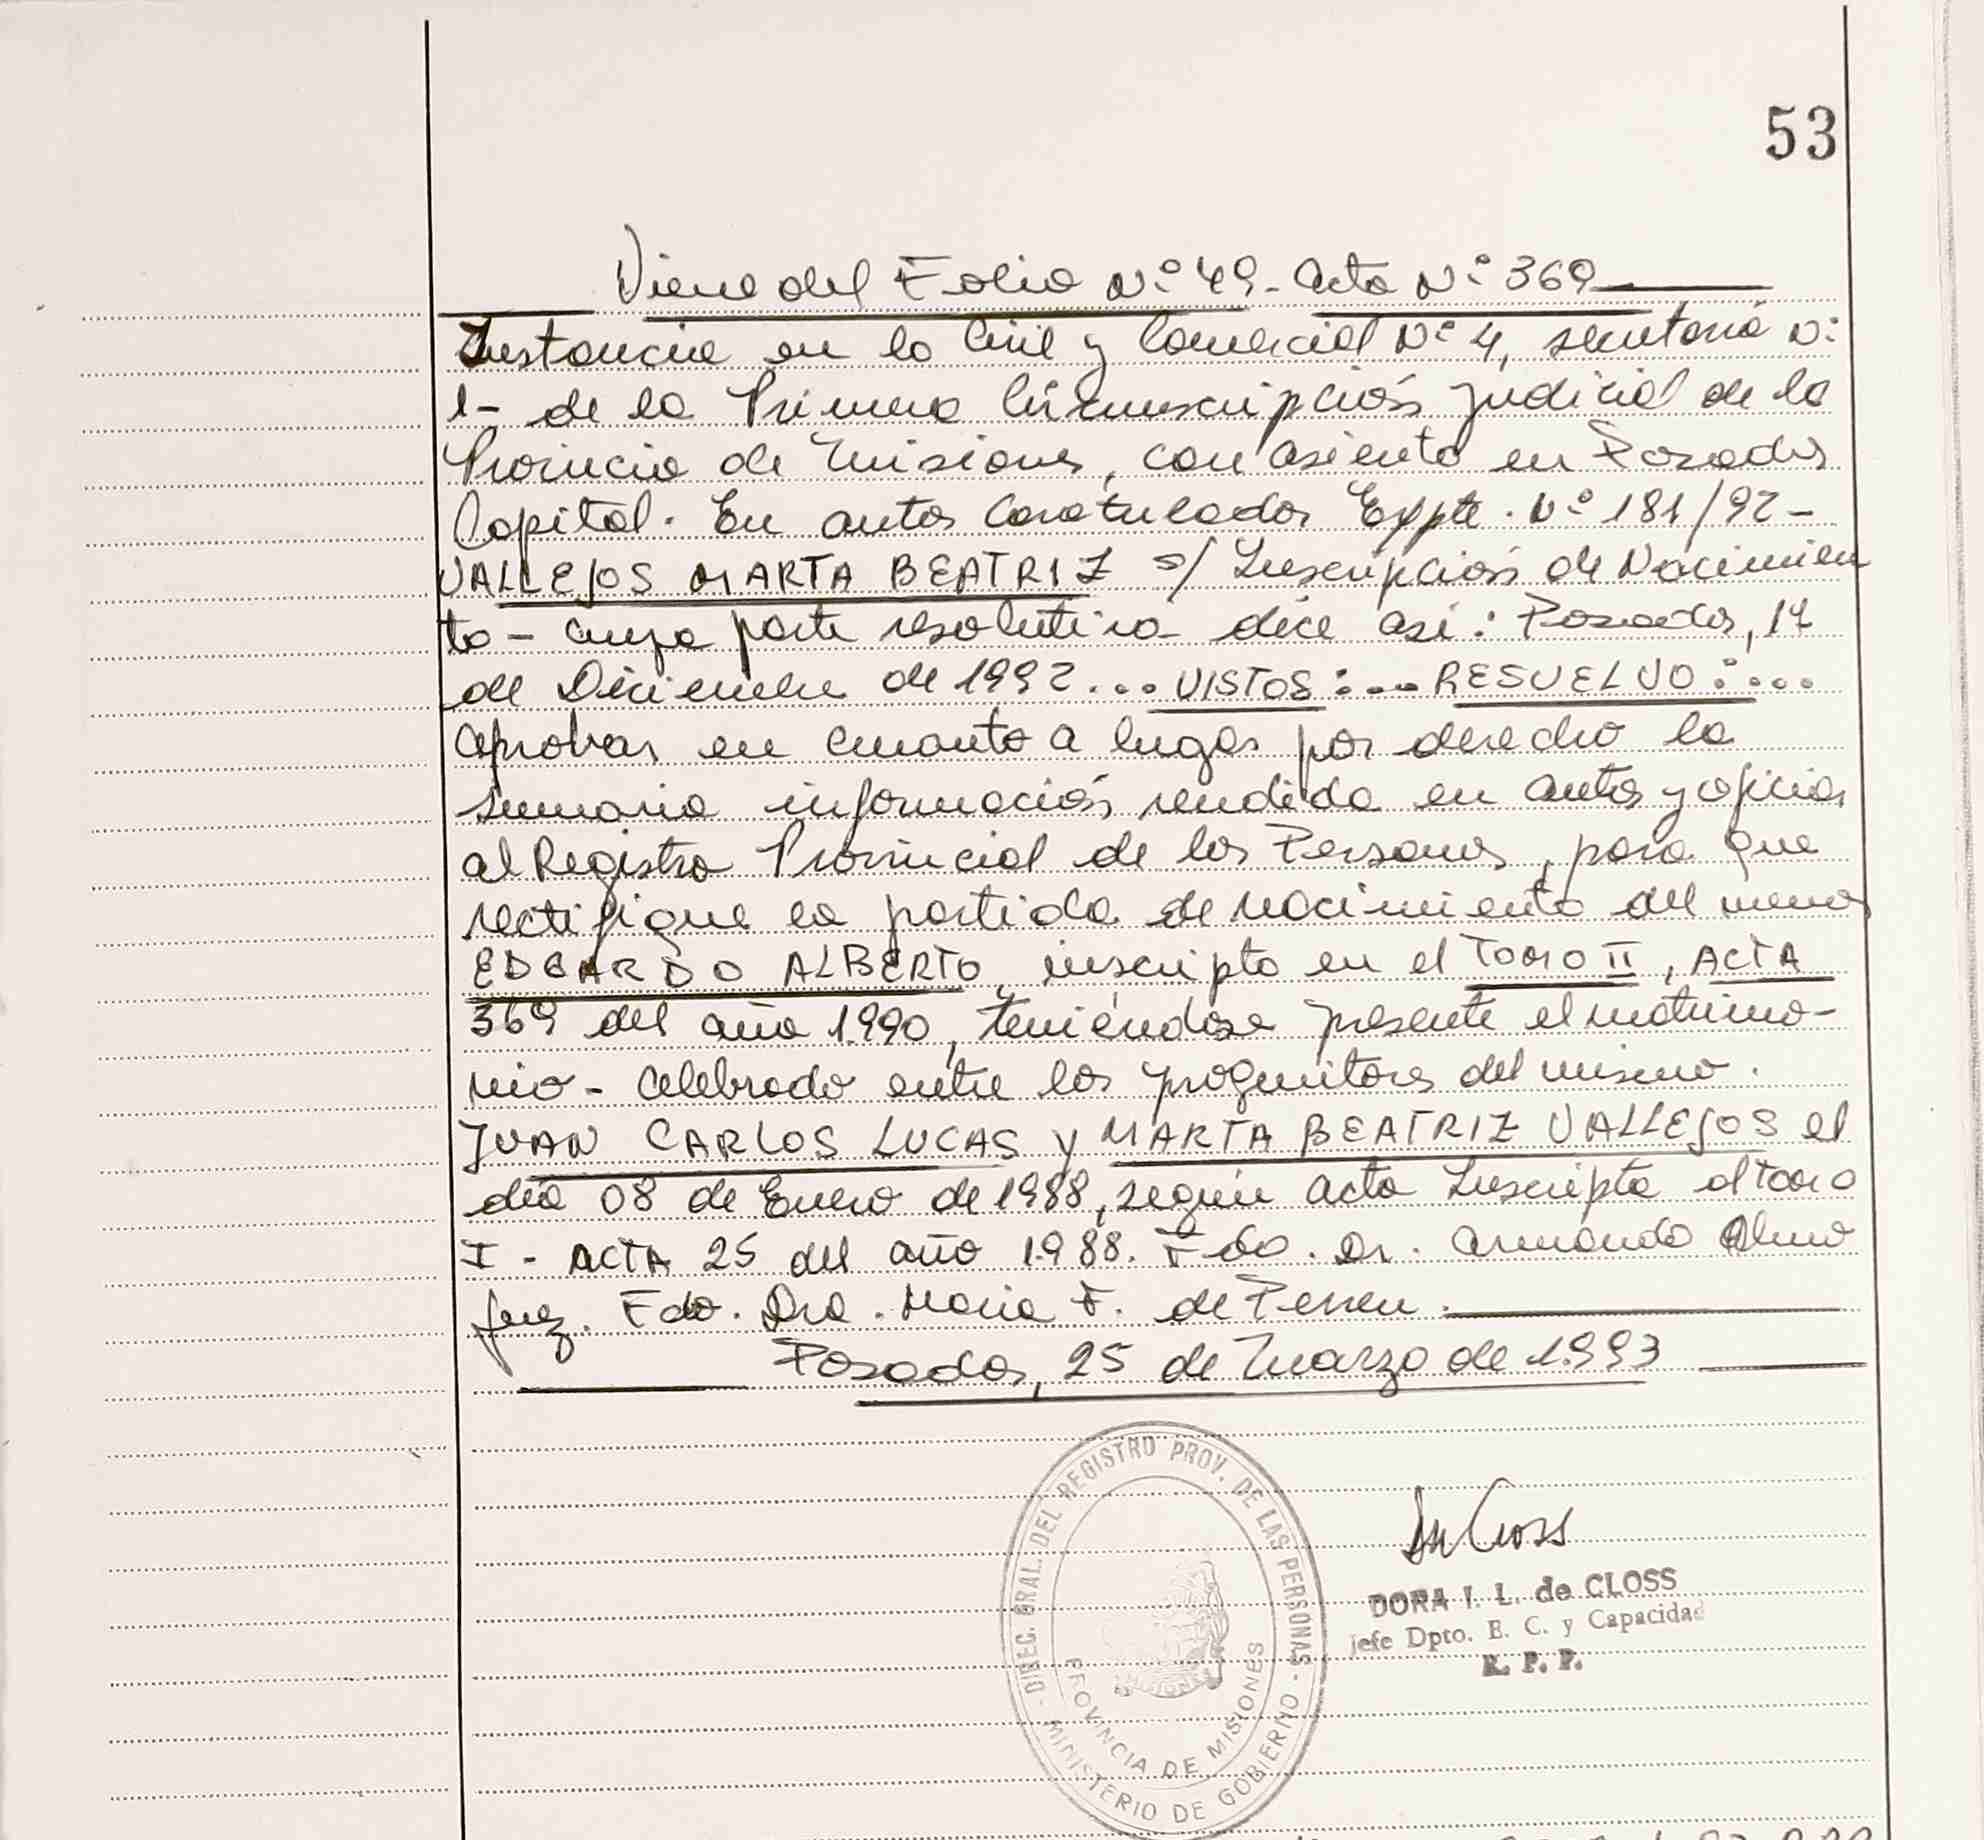 53
Viene del Folio Nº 49 - Acta Nº 369
Instancia en lo Civil y Comercial Nº 4, secretaría Nº
1 - de la Primera Circunscripción Judicial de la
Provincia de Misiones, con asiento en Posadas
Capital. En autos Caratulados Expte. Nº 181/92 -
VALLEJOS MARTA BEATRIZ s/ Inscripción de Nacimien
to - cuya parte resolutiva dice así: Posadas, 17
de Diciembre de 1992... VISTOS:... RESUELVO:...
Aprobar en cuanto a lugar por derecho la
sumaria información rendida en autos y oficiar
al Registro Provincial de las Personas, para que
rectifique la partida de nacimiento del menor
EDGARDO ALBERTO, inscripto en el TOMO II, ACTA
369 del año 1.990, teniéndose presente el matrimo-
nio - celebrado entre los progenitores del mismo.
JUAN CARLOS LUCAS y MARTA BEATRIZ VALLEJOS el
día 08 de Enero de 1988, según acta Inscripta al tomo
I - ACTA 25 del año 1.988. Fdo. Dr. Armando
Juez. Fdo. Dra. Maria F. de
Posadas, 25 de Marzo de 1.993
DIREC. GRAL. DEL REGISTRO PROV. DE LAS PERSONAS - MINISTERIO DE GOBIERNO -
PROVINCIA DE MISIONES
DORA I. L. de CLOSS
Jefe Dpto. E. C. y Capacidad
R. P. P.